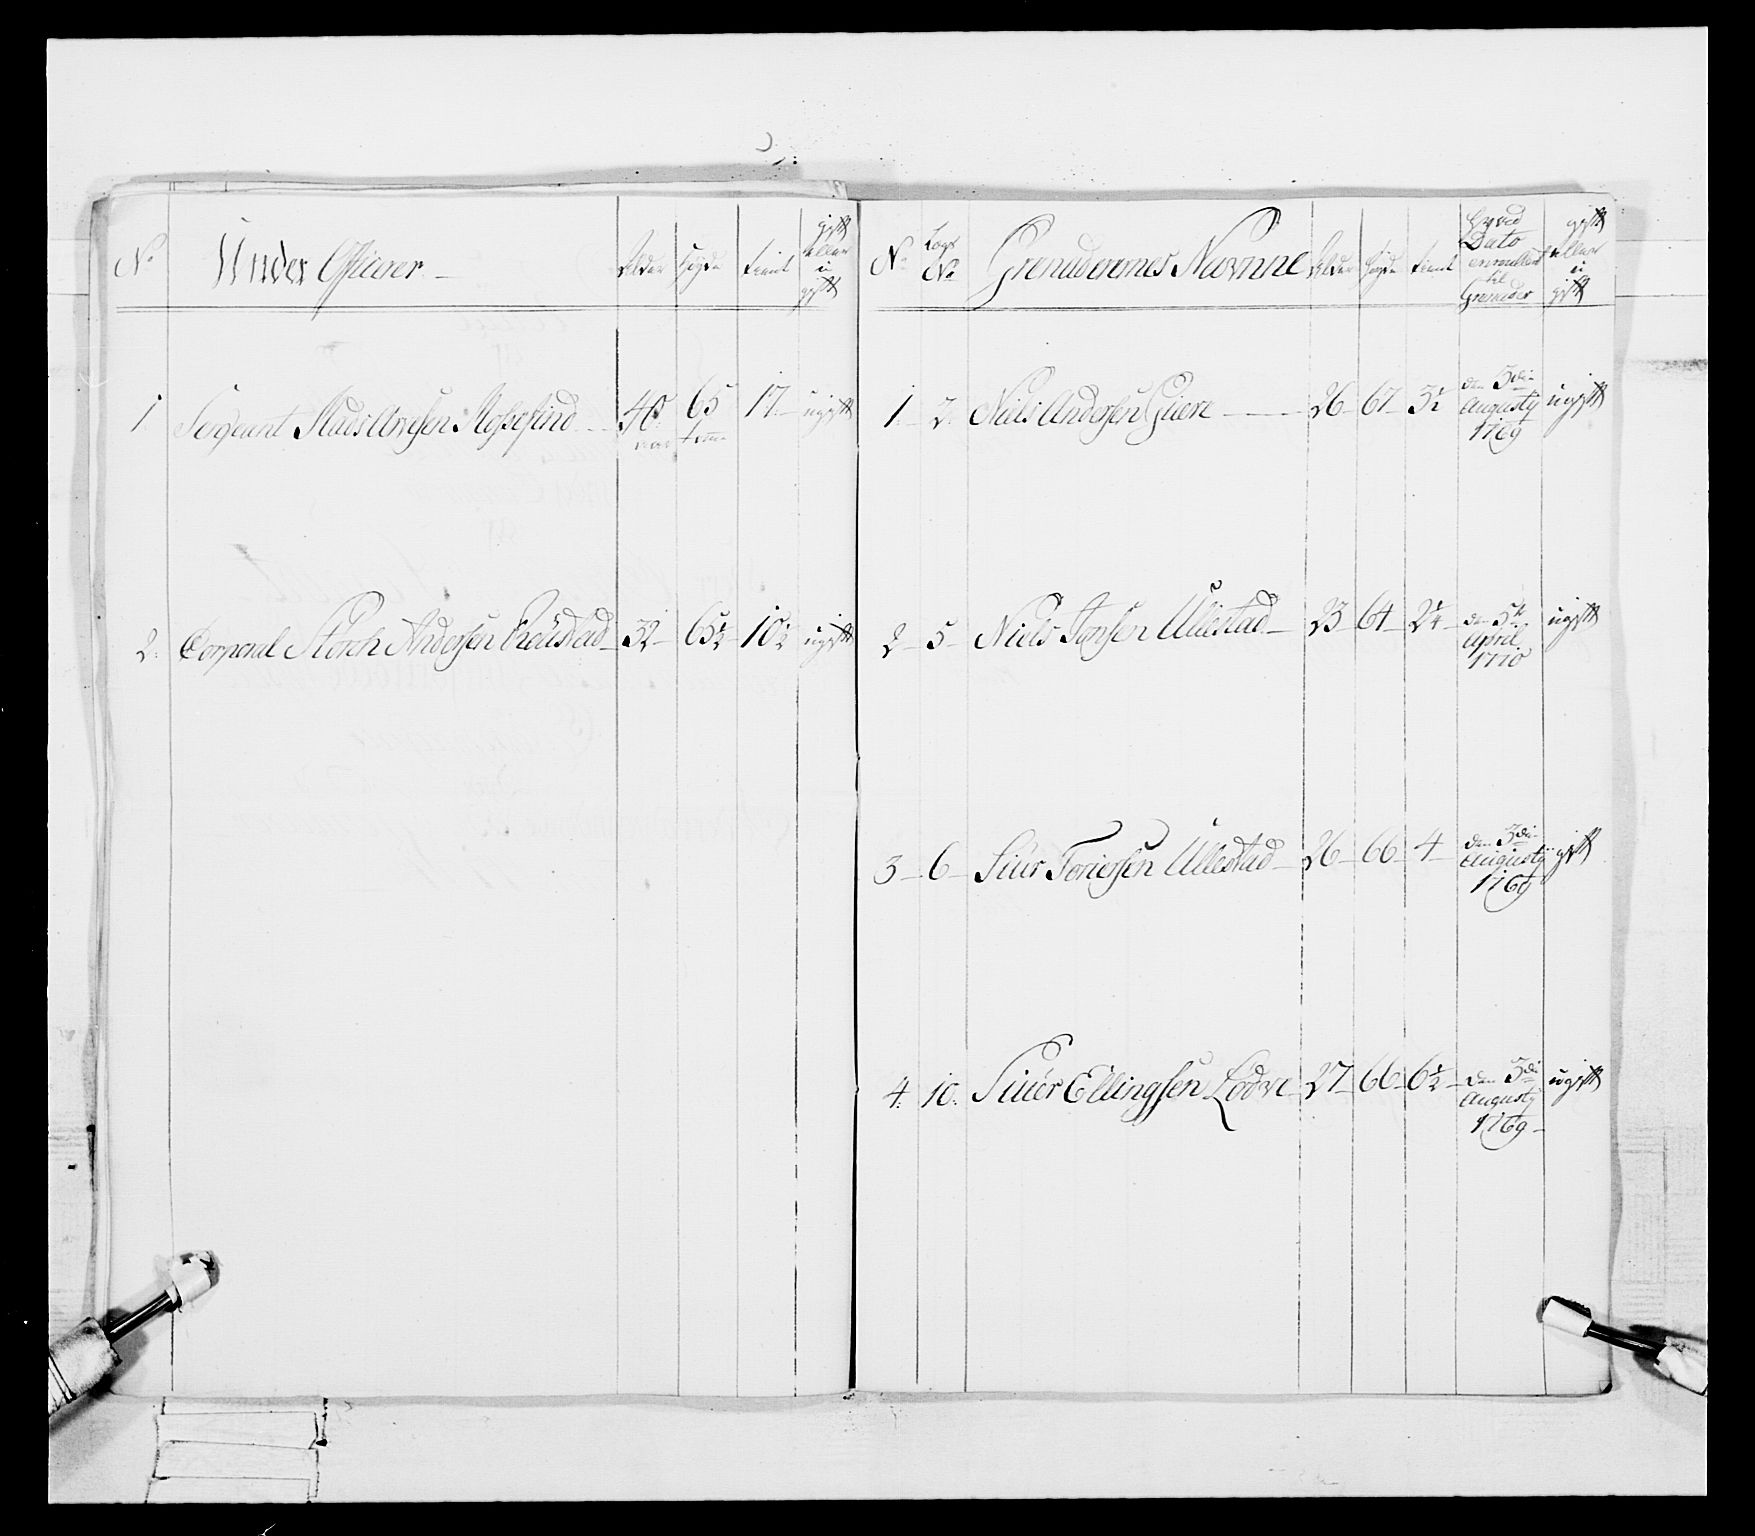 No Under Officerer Alder Høyde tient gift eller u gift
1 Sergeant Mads Arvesen 40 aar 65 tom 17 ugift
2 Corporal Storch Andersen 32 65½ 10½ ugift
No Lægs No Grenaderernes Navnne Alder Høyde tient hvad Dato enroullert til Grenader gift eller u gift
1 2 Niels Andersen Giere 26 67 3½ den 3die Augusty 1769 ugift
2 5 Niels Jonsen Ullestad 23 64 2¼ den 5te April 1770 ugift
3 6 Siur Toriersen Ullestad 26 66 4 den 3die Augusty 1769 gift
4 10 Siuer Ellingsen Lødve 27 66 6½ den 3die Augusty 1769 ugift